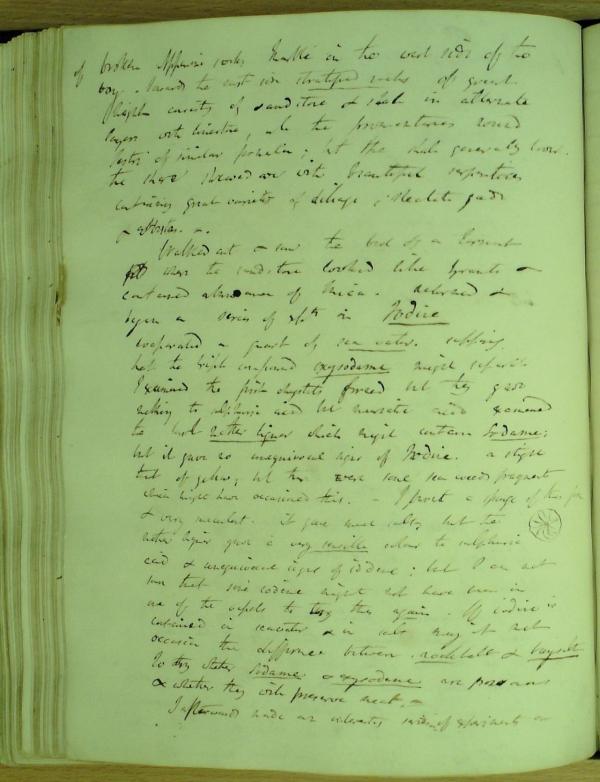 of broken Appenine rocks &
in the west side of the
bay. Towards the east side stratified rocks of great
height consists of sandstone & shale in alternate
layers with limestone, & the promontories round
Sestri of similar formation; but the shale generally
the shore strewed over with beautiful serpentines
containing great varieties of diallage, steatite, jade
& asbestos. —
Walked out & saw the bed of a torrent
where the sandstone looked like granite &
contained abundance of mica. returned &
began a series of expts in Iodine
evaporated a quart of sea water. supposing
that the triple compound oxyiodame might separate
I examined the first crystals formed but they gave
nothing to sulphuric acid but muriatic acid examined
the mother liquor which might contain Iodame;
but it gave no unequivocal signs of Iodine. a slight
tint of yellow; but there were some sea weed fragments
which might have occasioned this. — I procured a sponge of this
& very succulent. it gave much salts, but the
mother liquor gave a very sensible colour to sulphuric
acid & unequivocal signs of iodine; but I am not
sure that some iodine might not have been in
one of the vessels to try this again. If iodine is
contained in seawater & in salt may it not
occasion the difference between rocksalt & baysalt
To try whether Iodame & oxyiodame are poisonous
& whether they will preserve meat. —
I afterwards made an series of experiments on